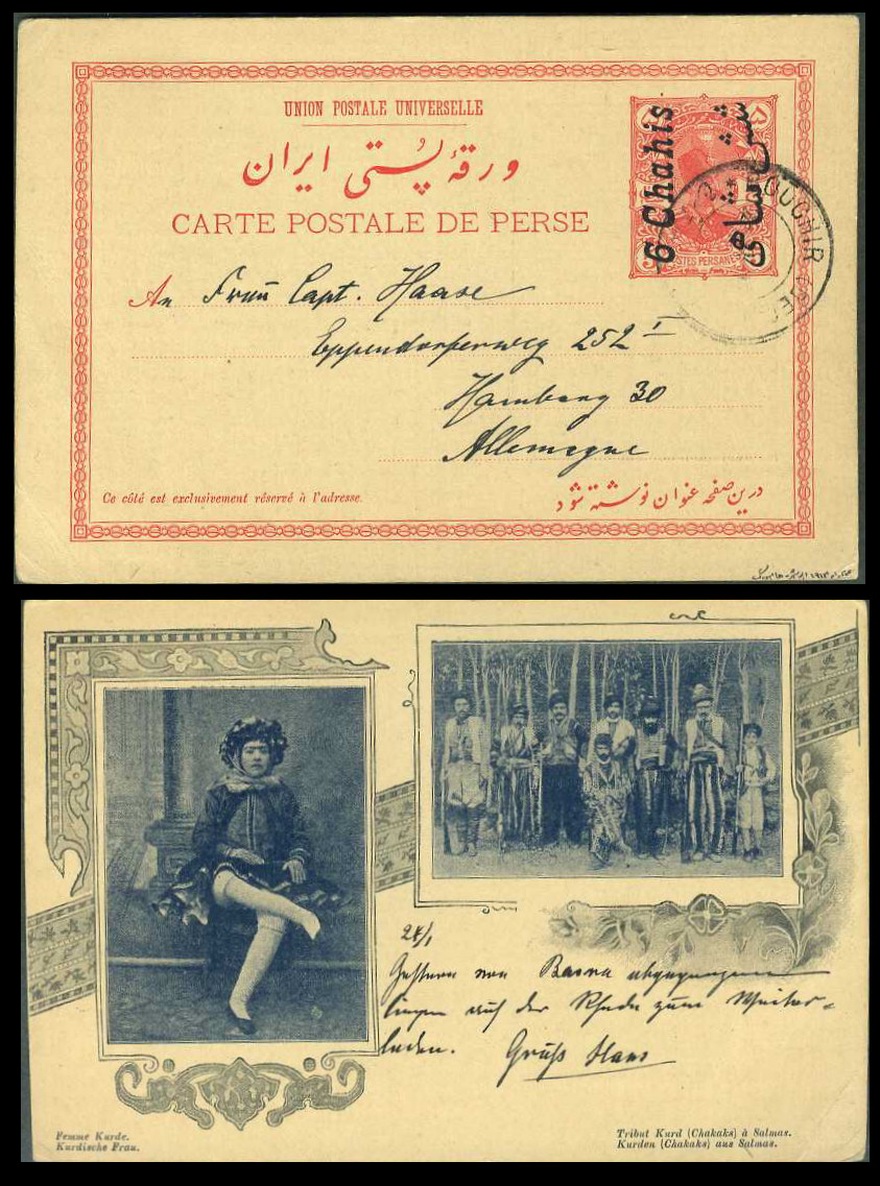 UNION POSTALE UNIVERSELLE
ورقهٔ پستی ایران
CARTE POSTALE DE PERSE
6 Chahis
شش شاهی
POSTES PERSANES
5
۵
BOUCHIR
An Frau Capt. Haase
Eppendorferweg 252 I
Hamburg 30
Allemagne
Ce côté est exclusivement réservé à l'adresse.
درین صفحه عنوان نوشته شود
24/1
Gestern von Basra abgegangen
liegen auf der Rhede zum Weiter-
laden. Gruß Hans
Femme Kurde.
Kurdische Frau.
Tribut Kurd (Chakaks) à Salmas.
Kurden (Chakaks) aus Salmas.